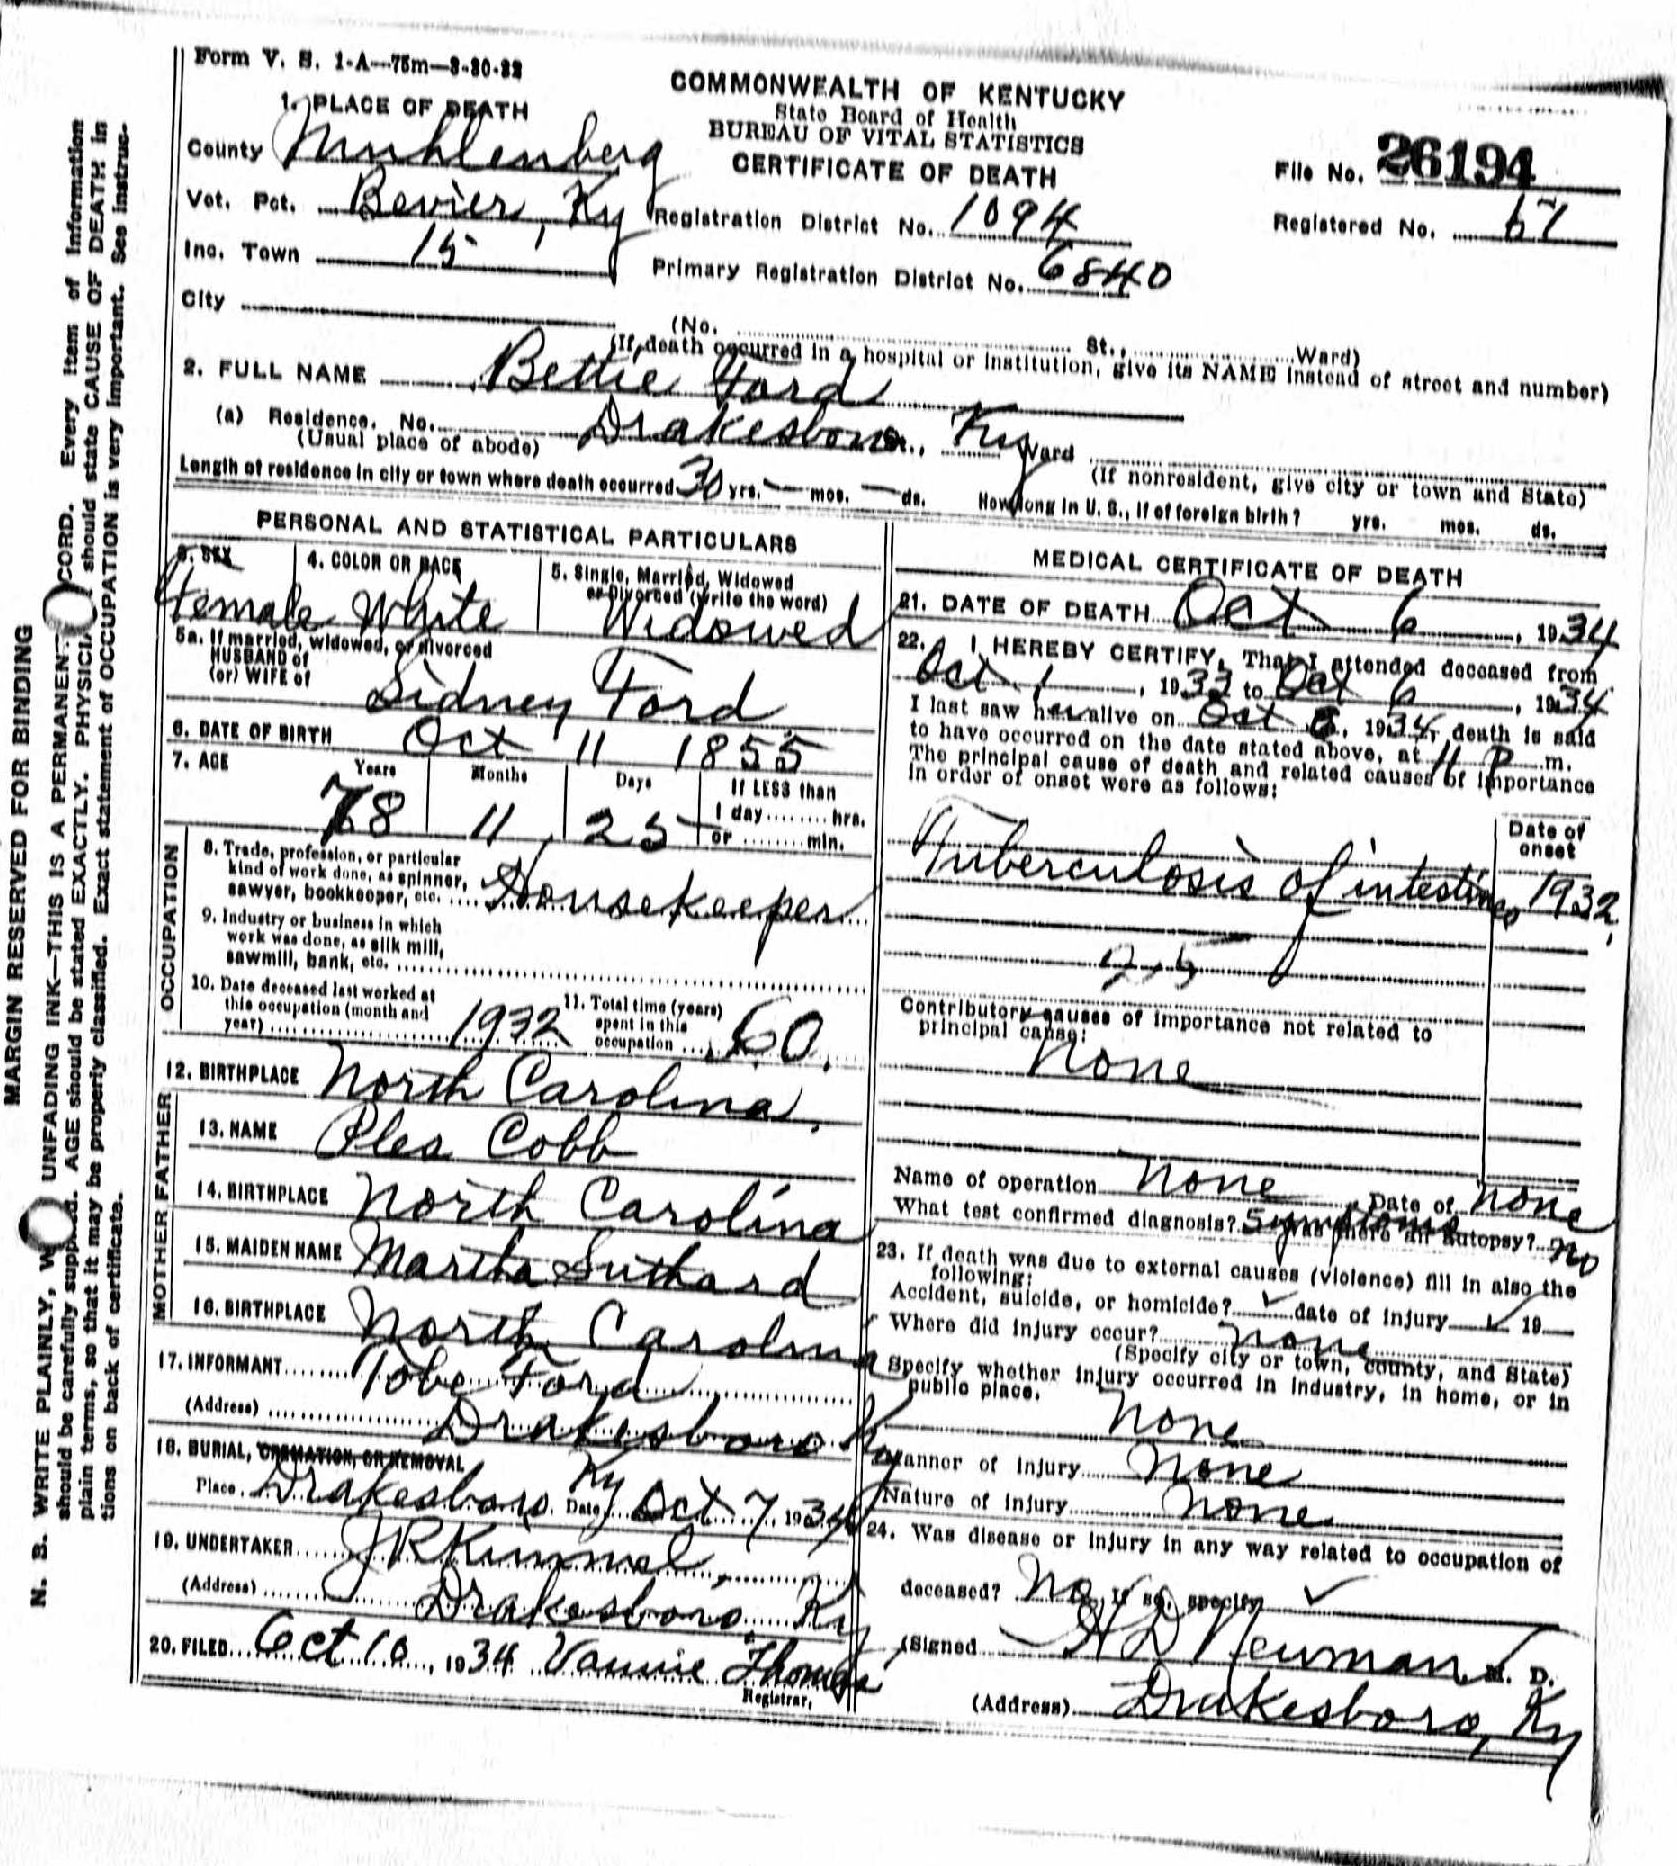 Form V. S. 1-A—75m—3-30-32
COMMONWEALTH OF KENTUCKY
State Board of Health
BUREAU OF VITAL STATISTICS
CERTIFICATE OF DEATH
1. PLACE OF DEATH
County Muhlenberg
File No. 26194
Vot. Pct. Bevier, Ky
Registration District No. 1094
Registered No. 67
Inc. Town 15
Primary Registration District No. 6840
City
(No. St., Ward)
(If death occurred in a hospital or institution, give its NAME instead of street and number)
2. FULL NAME Bettie Ford
(a) Residence. No. Drakesboro St., Ky Ward
(Usual place of abode)
(If nonresident, give city or town and State)
Length of residence in city or town where death occurred 30 yrs. — mos. — ds. How long in U. S., if of foreign birth? yrs. mos. ds.
PERSONAL AND STATISTICAL PARTICULARS
3. SEX
Female
4. COLOR OR RACE
White
5. Single, Married, Widowed
or Divorced (write the word)
Widowed
5a. If married, widowed, or divorced
HUSBAND of
(or) WIFE of
Sidney Ford
6. DATE OF BIRTH Oct 11 1855
7. AGE Years Months Days If LESS than
1 day........hrs.
or ........min.
78 11 25
OCCUPATION
8. Trade, profession, or particular
kind of work done, as spinner,
sawyer, bookkeeper, etc. Housekeeper
9. Industry or business in which
work was done, as silk mill,
sawmill, bank, etc.
10. Date deceased last worked at
this occupation (month and
year) 1932
11. Total time (years)
spent in this
occupation 60
12. BIRTHPLACE North Carolina
FATHER
13. NAME Ples Cobb
14. BIRTHPLACE North Carolina
MOTHER
15. MAIDEN NAME Martha Suthard
16. BIRTHPLACE North Carolina
17. INFORMANT Tobe Ford
(Address) Drakesboro Ky
18. BURIAL, CREMATION, OR REMOVAL
Place Drakesboro Ky Date Oct 7, 1934
19. UNDERTAKER J R Kimmel
(Address) Drakesboro, Ky
20. FILED Oct 10, 1934 Vannie Thomas
Registrar.
MEDICAL CERTIFICATE OF DEATH
21. DATE OF DEATH Oct 6, 1934
22. I HEREBY CERTIFY, That I attended deceased from
Oct 1, 1933 to Oct 6, 1934
I last saw her alive on Oct 6, 1934, death is said
to have occurred on the date stated above, at 11 P m.
The principal cause of death and related causes of importance
in order of onset were as follows:
Date of
onset
Tuberculosis of intestines 1932
25
Contributory causes of importance not related to
principal cause:
none
Name of operation none Date of none
What test confirmed diagnosis? Symptoms Was there an autopsy? no
23. If death was due to external causes (violence) fill in also the
following:
Accident, suicide, or homicide? ✓ date of injury ✓ 19
Where did injury occur? none
(Specify city or town, county, and State)
Specify whether injury occurred in industry, in home, or in
public place.
none
Manner of injury none
Nature of injury none
24. Was disease or injury in any way related to occupation of
deceased? No If so, specify ✓
(Signed H D Newman, M. D.
(Address) Drakesboro, Ky
MARGIN RESERVED FOR BINDING
N. B. WRITE PLAINLY, W UNFADING INK—THIS IS A PERMANENT CORD. Every item of information
should be carefully supplied. AGE should be stated EXACTLY. PHYSICIA should state CAUSE OF DEATH in
plain terms, so that it may be properly classified. Exact statement of OCCUPATION is very important. See instruc-
tions on back of certificate.